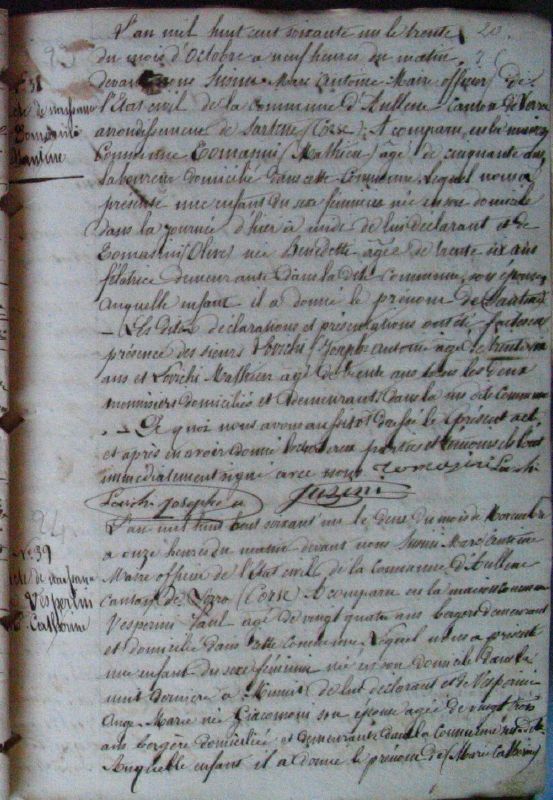 L'an mil huit cent soixante un le trente
du mois d'Octobre a neuf heures du matin
devant nous Susini Marc Antoine Maire officier de
l'Etat civil de la Commune d'Aullene Canton de
arrondissement de Sartene (Corse). A comparu en la maison
Commune Tomasini (Mathieu) âgé de cinquante ans
laboureur domicilié dans cette Commune, lequel nous a
présenté une enfant du sexe féminin née en son domicile
dans la journée d'hier à midi de lui déclarant et de
Tomasini (Olive) née Benedetti âgée de trente six ans
filatrice demeurante dans la dite commune, son épouse
auquelle enfant il a donné le prénom de
Les dites déclarations et présentations ont été faites en
présence des sieurs Lovichi Joseph Antoine âgé de trente
ans et Lovichi Mathieu âgé de trente ans tous les deux
domiciliés et demeurants dans la susdite Commune
De quoi nous avons dressé le présent acte
et après en avoir donné lecture aux parties et témoins ils l'ont
immédiatement signé avec nous Tomasini Lovichi
Lovichi Joseph a Susini
L'an mil huit cent soixante un le deux du mois de Novembre
a onze heures du matin devant nous Susini Marc Antoine
Maire officier de l'Etat civil de la Commune d'Aullene
Canton de (Corse) A comparu en la maison Commune
Vesperini Paul âgé de vingt quatre ans berger demeurant
et domicilié dans cette Commune Lequel nous a présenté
une enfant du sexe féminin née en son domicile dans la
nuit dernière à Minuit de lui déclarant et de Vesperini
Ange Marie née Giacomoni son épouse agée de vingt trois
ans bergère domiciliée et demeurante dans la Commune
Auquelle enfant il a donné le prénom de (Marie Catherine
20.
93
N° 38
de naissance
Tomasini
94
N° 39
de naissance
Vesperini
Catherine